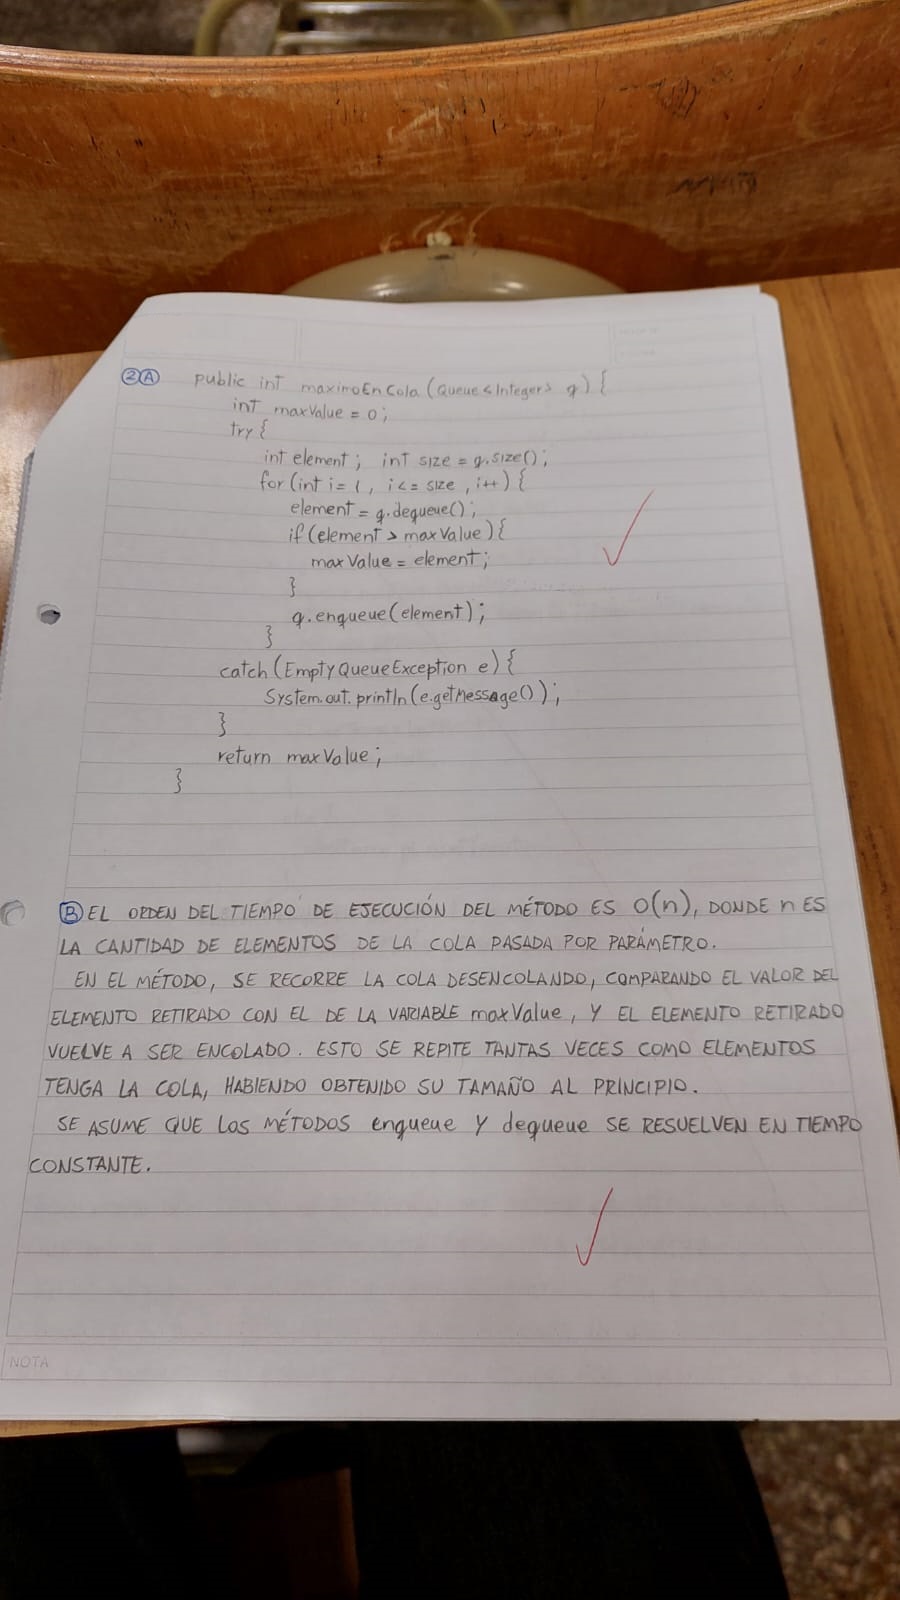 2A public int maximoEnCola (Queue<Integer> q) {
int maxValue = 0;
try {
int element; int size = q.size();
for (int i = 1, i <= size, i++) {
element = q.dequeue();
if (element > maxValue) {
maxValue = element;
}
q.enqueue(element);
}
catch (EmptyQueueException e) {
System.out.println(e.getMessage());
}
return maxValue;
}
B EL ORDEN DEL TIEMPO DE EJECUCIÓN DEL MÉTODO ES O(n), DONDE n ES
LA CANTIDAD DE ELEMENTOS DE LA COLA PASADA POR PARÁMETRO.
EN EL MÉTODO, SE RECORRE LA COLA DESENCOLANDO, COMPARANDO EL VALOR DEL
ELEMENTO RETIRADO CON EL DE LA VARIABLE maxValue, Y EL ELEMENTO RETIRADO
VUELVE A SER ENCOLADO. ESTO SE REPITE TANTAS VECES COMO ELEMENTOS
TENGA LA COLA, HABIENDO OBTENIDO SU TAMAÑO AL PRINCIPIO.
SE ASUME QUE LOS MÉTODOS enqueue Y dequeue SE RESUELVEN EN TIEMPO
CONSTANTE.
NOTA